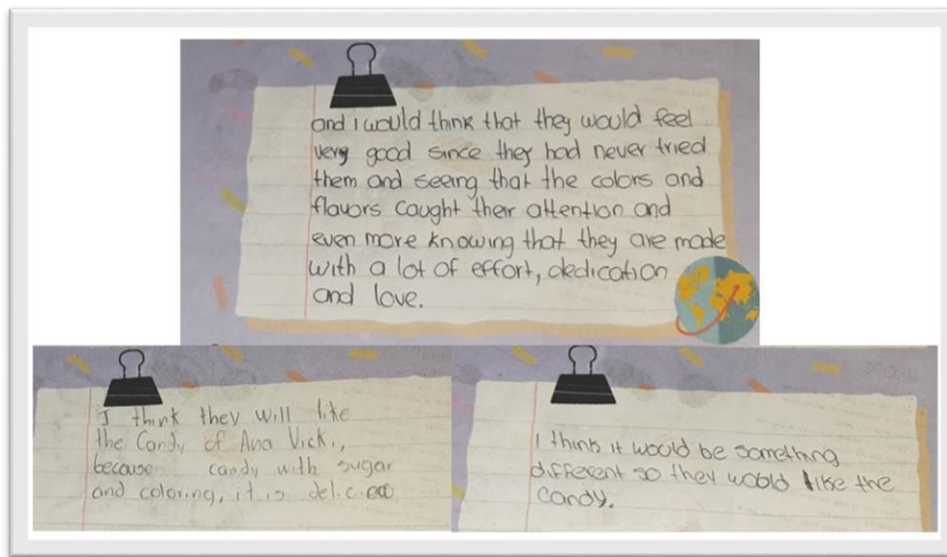 and I would think that they would feel
very good since they had never tried
them and seeing that the colors and
flavors caught their attention and
even more knowing that they are made
with a lot of effort, dedication
and love.
I think they will like
the Candy of Ana Vicki,
because candy with sugar
and coloring, it is
I think it would be something
different so they would like the
candy.